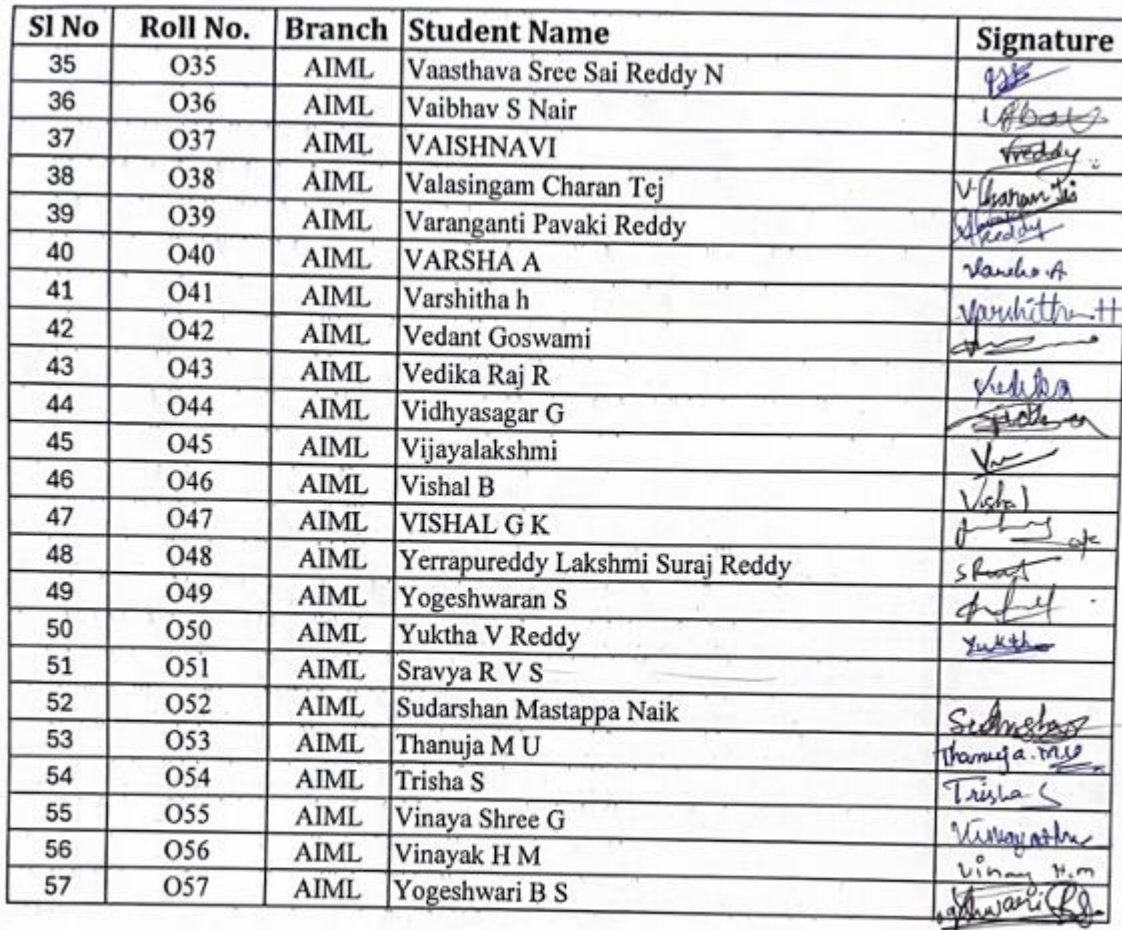 Sl No Roll No. Branch Student Name Signature
35 O35 AIML Vaasthava Sree Sai Reddy N
36 O36 AIML Vaibhav S Nair
37 O37 AIML VAISHNAVI Reddy
38 O38 AIML Valasingam Charan Tej V. Charan Tej
39 O39 AIML Varanganti Pavaki Reddy Reddy
40 O40 AIML VARSHA A Varsha.A
41 O41 AIML Varshitha h Varshitha.H
42 O42 AIML Vedant Goswami
43 O43 AIML Vedika Raj R Vedika
44 O44 AIML Vidhyasagar G
45 O45 AIML Vijayalakshmi
46 O46 AIML Vishal B Vishal
47 O47 AIML VISHAL G K
48 O48 AIML Yerrapureddy Lakshmi Suraj Reddy
49 O49 AIML Yogeshwaran S
50 O50 AIML Yuktha V Reddy Yuktha
51 O51 AIML Sravya R V S
52 O52 AIML Sudarshan Mastappa Naik
53 O53 AIML Thanuja M U Thanuja.M.U
54 O54 AIML Trisha S Trisha S
55 O55 AIML Vinaya Shree G
56 O56 AIML Vinayak H M Vinay H.m
57 O57 AIML Yogeshwari B S